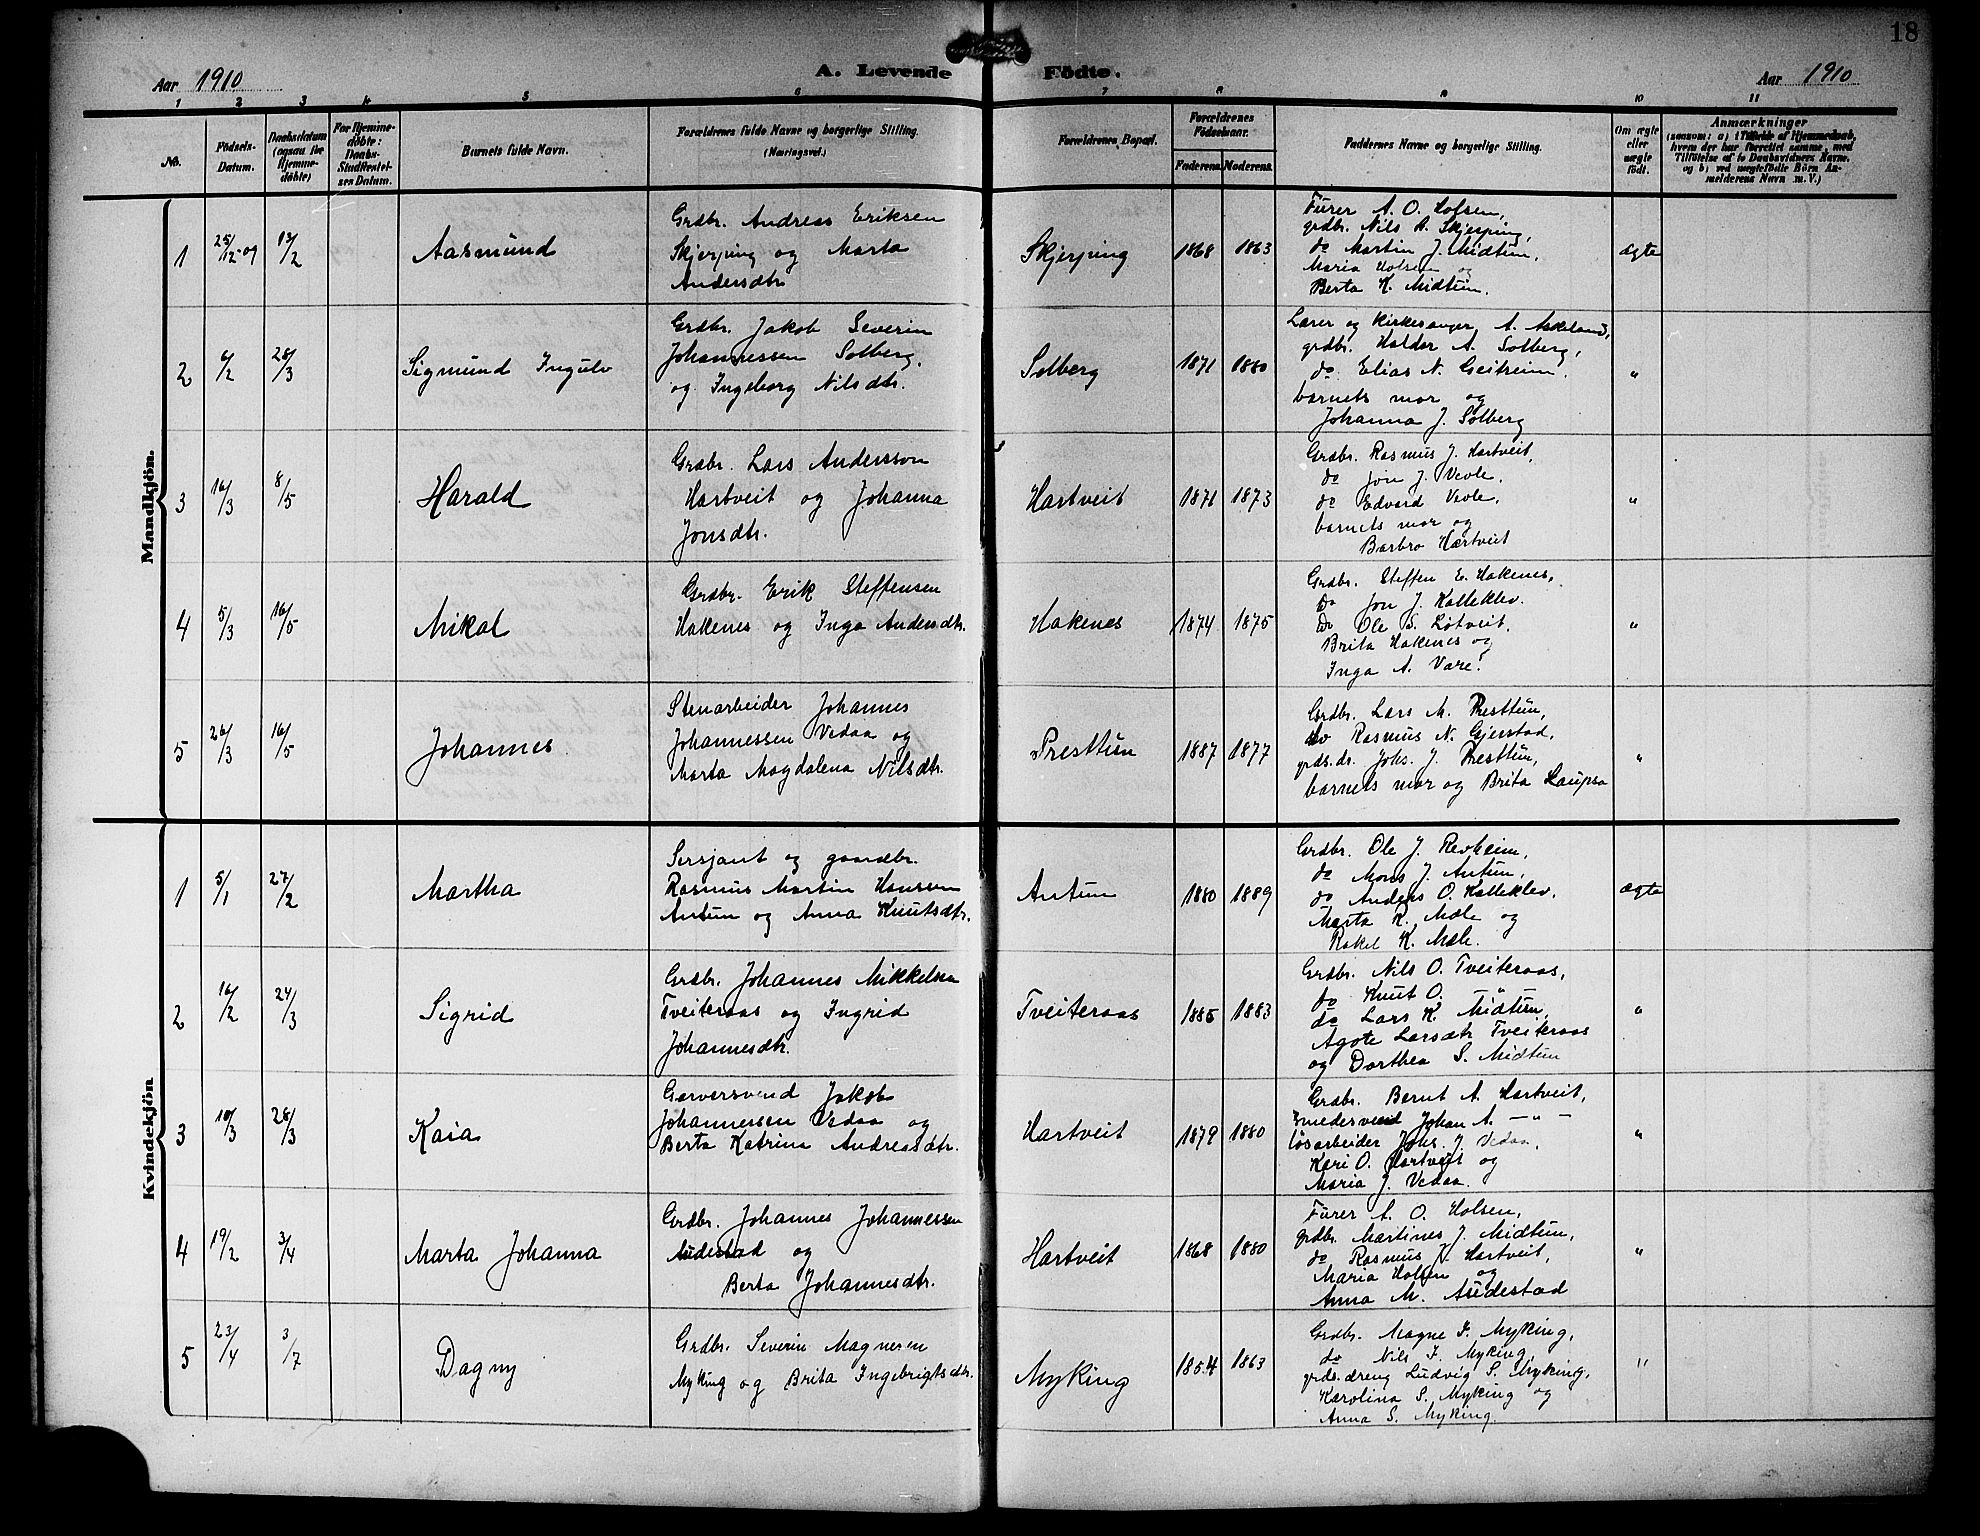 18
Aar 1910
A. Levende Födte.
Aar 1910
1 2 3 4 5 6 7 8 9 10 11
No.
Födsels-Datum.
Daabsdatum (ogsaa for Hjemme-döbte)
For Hjemme-döbte: Daabs-Stadfæstel-ses Datum.
Barnets fulde Navn.
Forældrenes fulde Navne og borgerlige Stilling. (Næringsvei.)
Forældrenes Bopæl.
Forældrenes Födselsaar.
Faderens Moderens
Faddernes Navne og borgerlige Stilling.
Om ægte eller uægte födt.
Anmærkninger
(saasom: a) i Tilfælde af Hjemmedaab, hvem der har forrettet samme, med Tilföielse af to Daabsvidners Navne, og b) ved uægtefödte Börn An-melderens Navn m. V.)
Mandkjön.
1 25/12-09 13/2 Aasmund
Grdbr. Andreas Eriksen
Skjerping og Marta
Andersdtr
Skjerping 1868 1863
Furer A. O. Holsen,
grdbr. Nils A. Skjerping,
do Martin J. Midtun,
Maria Holsen og
Berta K. Midtun.
ægte
2 6/2 28/3 Sigmund Ingulv
Grdbr. Jakob Severin
Johannessen Solberg,
og Ingeborg Nilsdtr.
Solberg 1871 1880
Lærer og kirkesanger A. Askeland,
grdbr. Haldor A. Solberg,
do. Elias N. Geitreim.
barnets mor og
Johanna J. Solberg
"
3 16/3 8/5 Harald
Grdbr. Lars Andersson
Hartveit og Johanna
Jonsdtr.
Hartveit 1871 1873
Grdbr. Rasmus J. Hartveit,
do Jon J. Vevle,
do Edvard Vevle,
barnets mor og
Barbro Hartveit
"
4 5/3 16/5 Mikal
Grdbr. Erik Steffensen
Hakenes og Inga Andersdtr.
Hakenes 1874 1875
Grdbr. Steffen E. Hakenes,
do Jon J. Kalleklev.
do Ole S. Lötveit,
Brita Hakenes og
Inga A. Vare.
"
5 26/3 16/5 Johannes
Stenarbeider Johannes
Johannessen Vedaa og
Marta Magdalena Nilsdtr.
Presttun 1887 1877
Grdbr. Lars M. Presttun,
do Rasmus N. Gjerstad,
grds.dr. Johs. J. Presttun,
barnets mor og Brita Laupsa
"
Kvindekjön
1 5/1 27/2 Martha
Sersjant og gaardbr.
Rasmus Martin Hanssen
Antun og Anna Knutsdtr.
Antun 1880 1889
Grdbr. Ole J. Revheim,
do Mons J. Antun,
do Anders O. Kalleklev,
Marta K. Mæle og
Rakel K. Mæle.
ægte
2 16/2 24/3 Sigrid
Grdbr. Johannes Mikkelsen
Tveiteraas og Ingrid
Johannesdtr.
Tveiteraas 1885 1883
Grdbr. Nils O. Tveiteraas,
do Knut O. — " —
do Lars K. Midtun,
Agote Larsdtr Tveiteraas
og Dorthea S. Midtun
"
3 10/3 28/3 Kaia
Garversvend Jakob
Johannessen Vedaa og
Berta Katrina Andreasdtr.
Hartveit 1879 1880
Grdbr. Bernt A. Hartveit,
Smedersvend Johan A. — " —
lösarbeider Johs. J. Vedaa,
Kari O. Hartveit og
Maria J. Vedaa.
"
4 19/2 3/4 Marta Johanna
Grdbr. Johannes Johannessen
Audestad og
Berta Johannesdtr.
Hartveit 1868 1880
Furer A. O. Holsen,
grdbr. Martines J. Midtun,
do Rasmus J. Hartveit,
Maria Holsen og
Anna M. Audestad
"
5 23/4 3/7 Dagny
Grdbr. Severin Magnesen
Myking og Brita Ingebrigtsdtr.
Myking 1854 1863
Grdbr. Magne I. Myking,
do Nils I. Myking,
grds.dreng Ludvig S. Myking,
Karolina S. Myking og
Anna S. Myking.
"